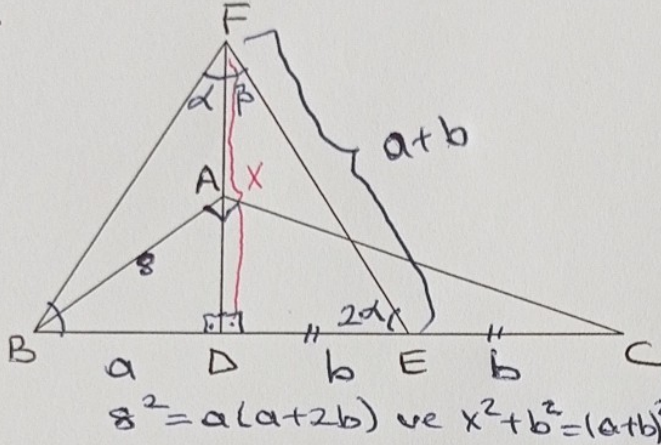 F
α β
a+b
A X
8
2α
B a D b E b C
8² = a(a+2b) ve x²+b²=(a+b)²